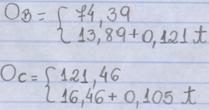 OB = { 74,39
13,89 + 0,121 t
OC = { 121,46
16,46 + 0,105 t